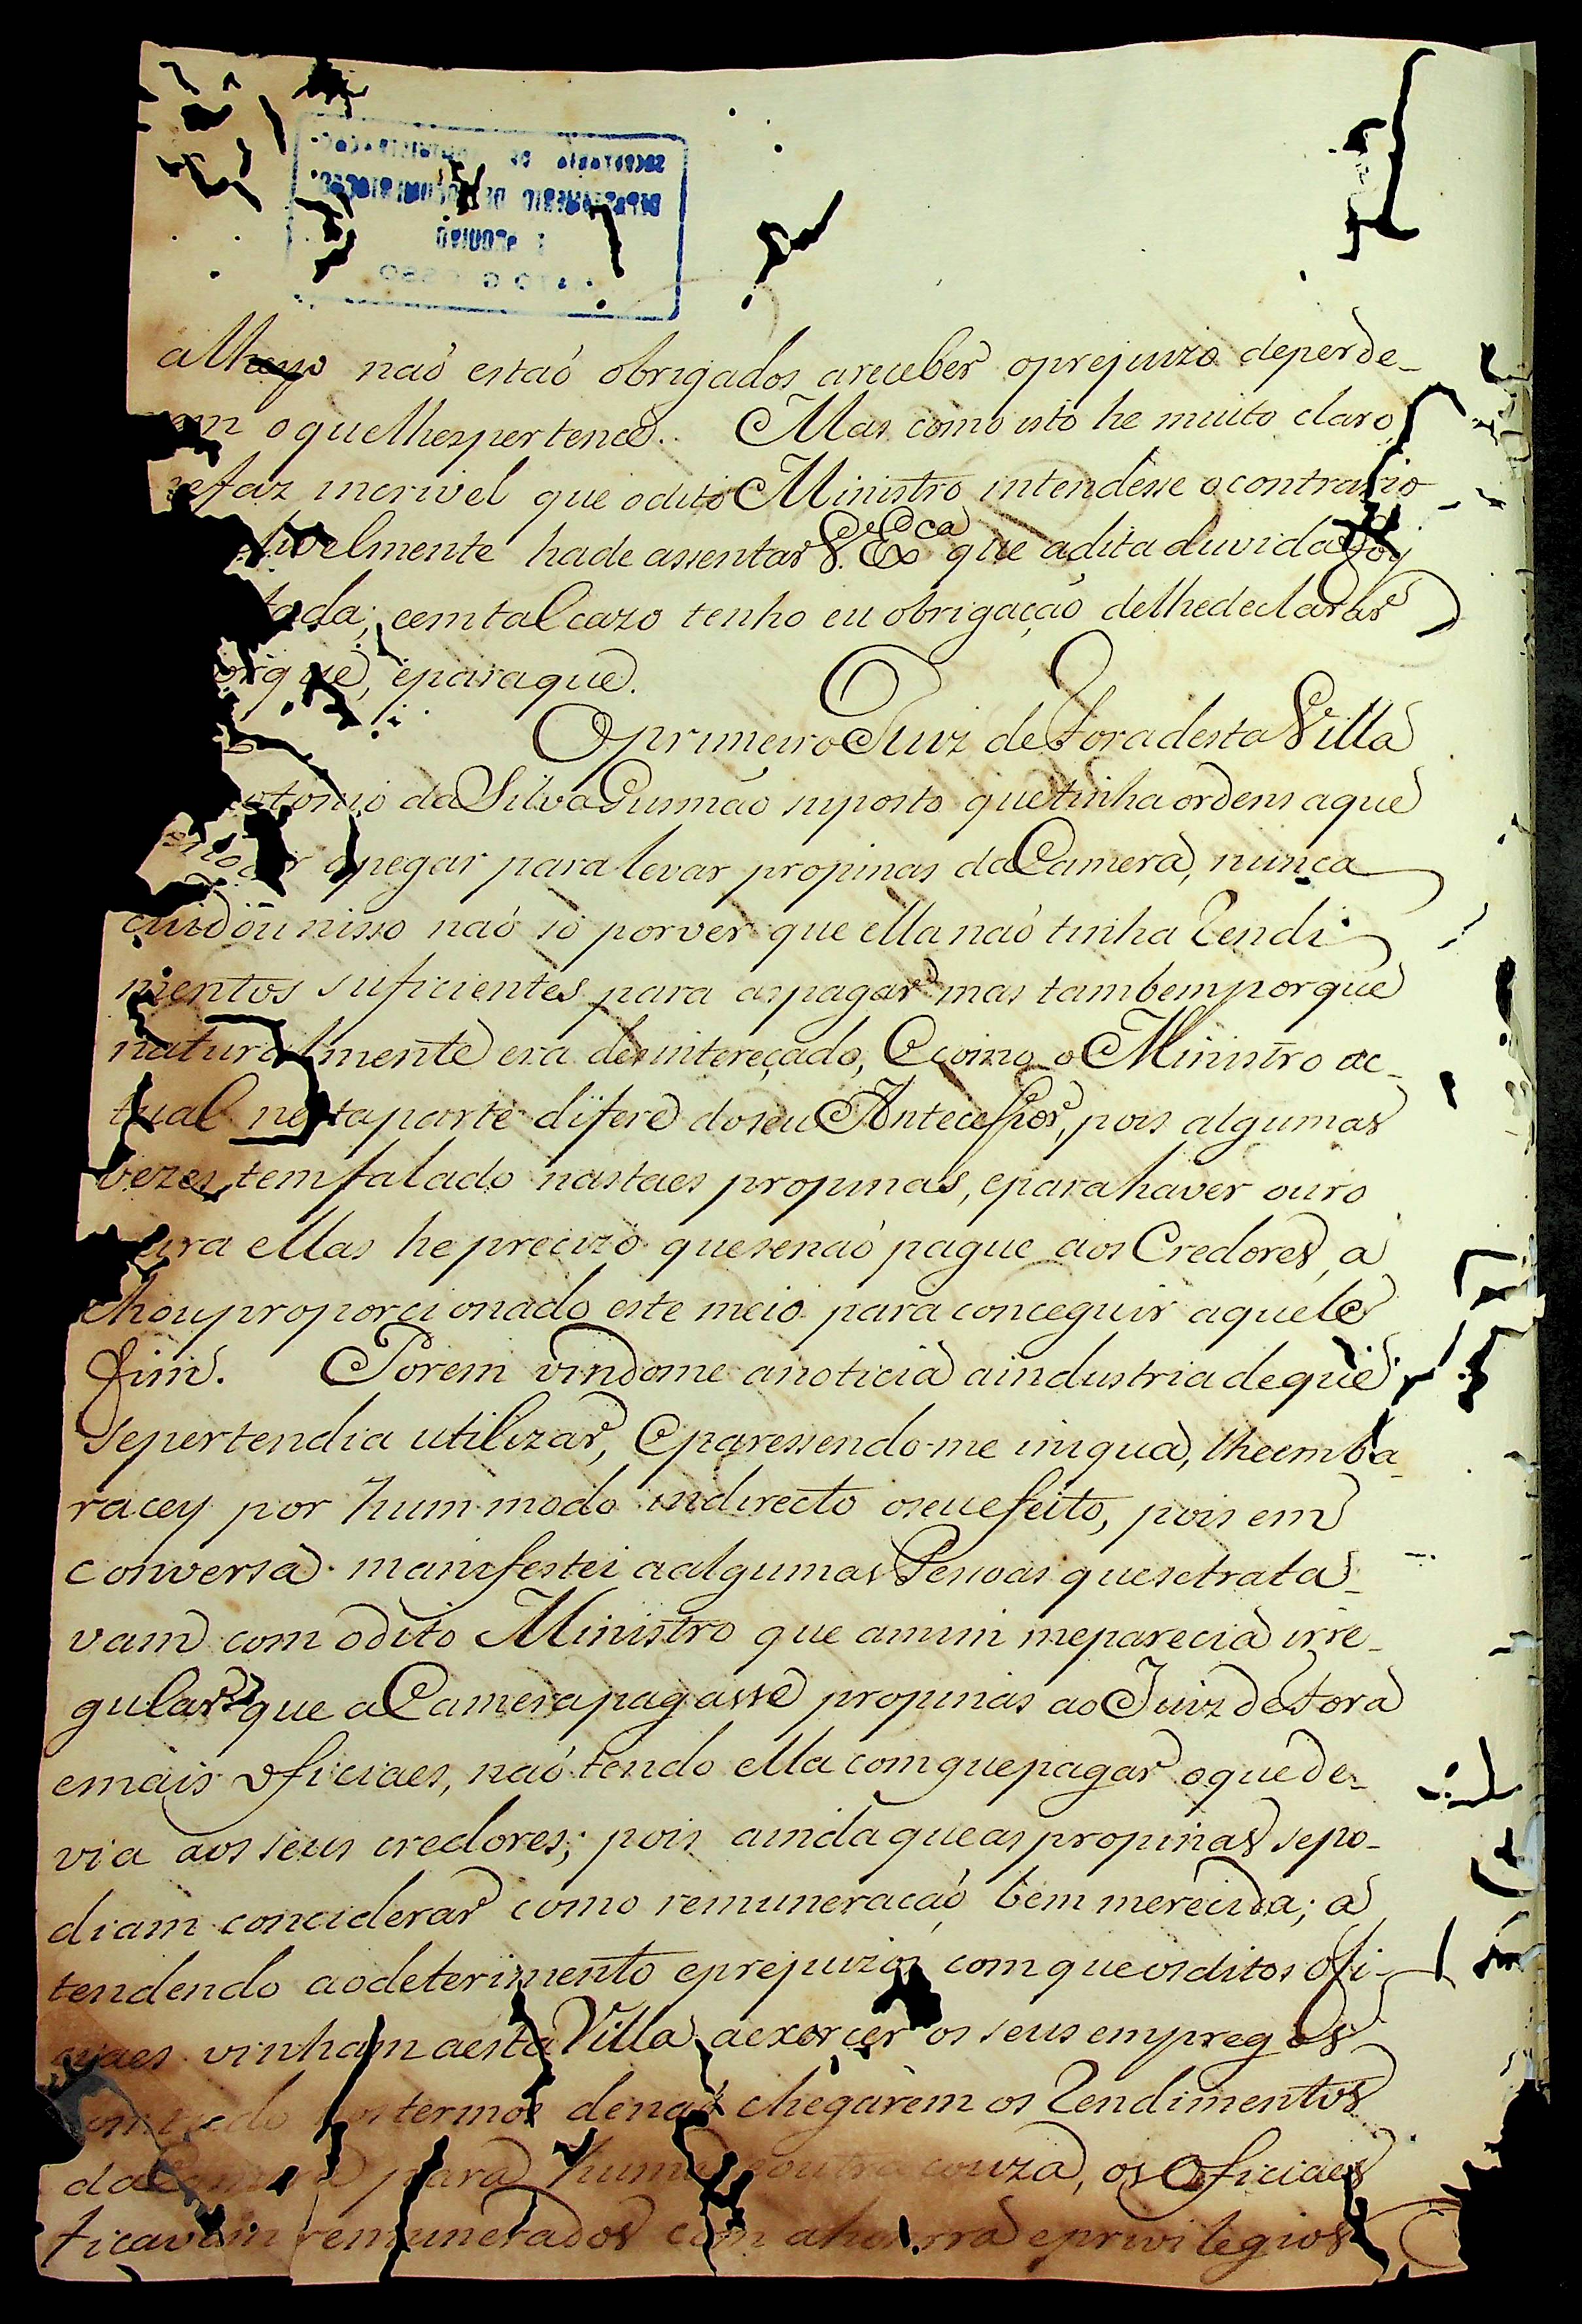 alheyo naõ estaõ obrigados areceber oprejuizo deperde-
oquelhespertence. Mas como isto he muito claro,
sefaz incrivel que odito Ministro intendesse ocontrario
hade assentar V. Exca que adita duvida foy
eemtalcazo tenho eu obrigaçaõ delhedeclarar
eparaque.
Oprimeiro Juiz de Fora desta Villa
da Silva Gusmaõ suposto quetinha ordens aque
apegar para levar propinas da Camera, nunca
cuidou nisso naõ só porver que ella naõ tinha Rendi
mentos suficientes para aspagar mas tambemporque
naturalmente era desintereçado, Ecomo o Ministro ac-
tual nestaparte difere doseu Antecessor, pois algumas
vezes temfalado nastaes propinas, eparahaver ouro
para ellas heprecizo quesenaõ pague aos Credores, a
chouproporcionado este meio para conceguir aquele
Fim. Porem vindome anoticia aindustria deque
sepertendia utilizar, Eparessendo-me iniqua, lheemba-
racey por hum modo indirecto oseuefeito, pois em
conversa manifestei aalgumas Pessoas quesetrata-
vam com odito Ministro que amim meparecia irre-
gular que aCamerapagasse propinas ao Juiz de Fora
emais oficiaes, naõ tendo ella comquepagar oquede-
via aos seus credores; pois ainda queas propinas sepo-
diam conciderar como remuneracaõ bem merecida; a
tendendo aodeterimento eprejuizos com queosditos ofi-
ciaes vinham aesta Villa aexorcer os seus empregos
termos denaõ chegarem os Rendimentos
da Camera para huma eoutra couza, os Oficiaes
ficavam remunerados com ahonrra eprivilegios